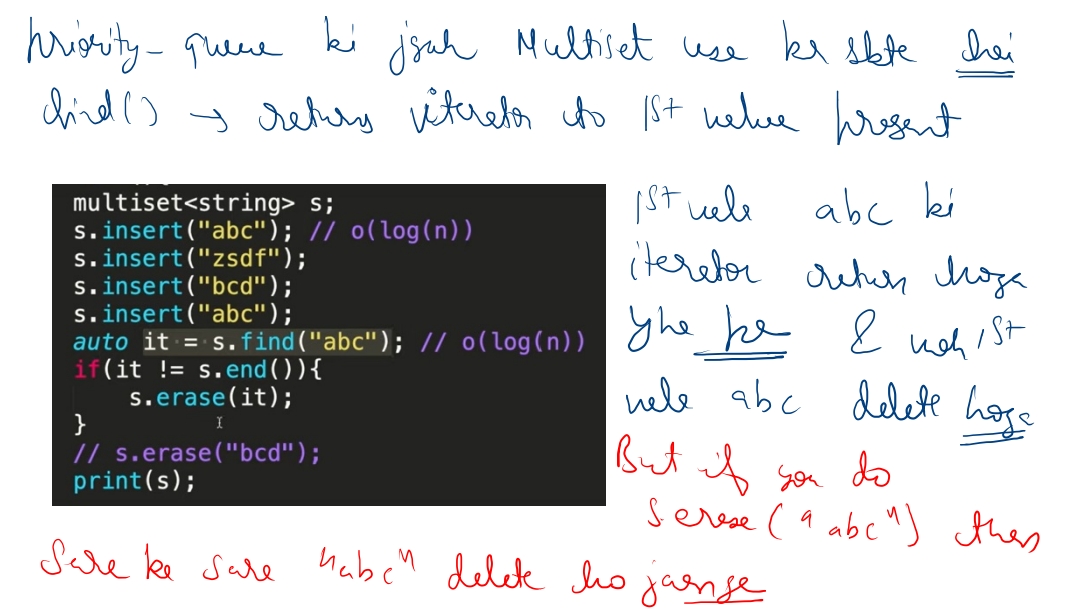 priority-queue ki jgah Multiset use kr skte hai
find() → returns iterator to 1st value present
multiset<string> s;
s.insert("abc"); // o(log(n))
s.insert("zsdf");
s.insert("bcd");
s.insert("abc");
auto it = s.find("abc"); // o(log(n))
if(it != s.end()){
s.erase(it);
}
// s.erase("bcd");
print(s);
1st vale abc ki
iterator return hoga
yha pe & woh 1st
vale abc delete hoga
But if you do
s.erase("abc") then
Sare ke sare "abc" delete ho jaenge